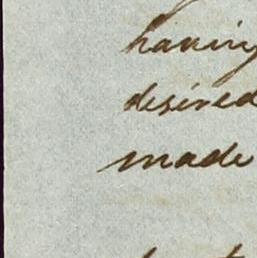 having
desired
made